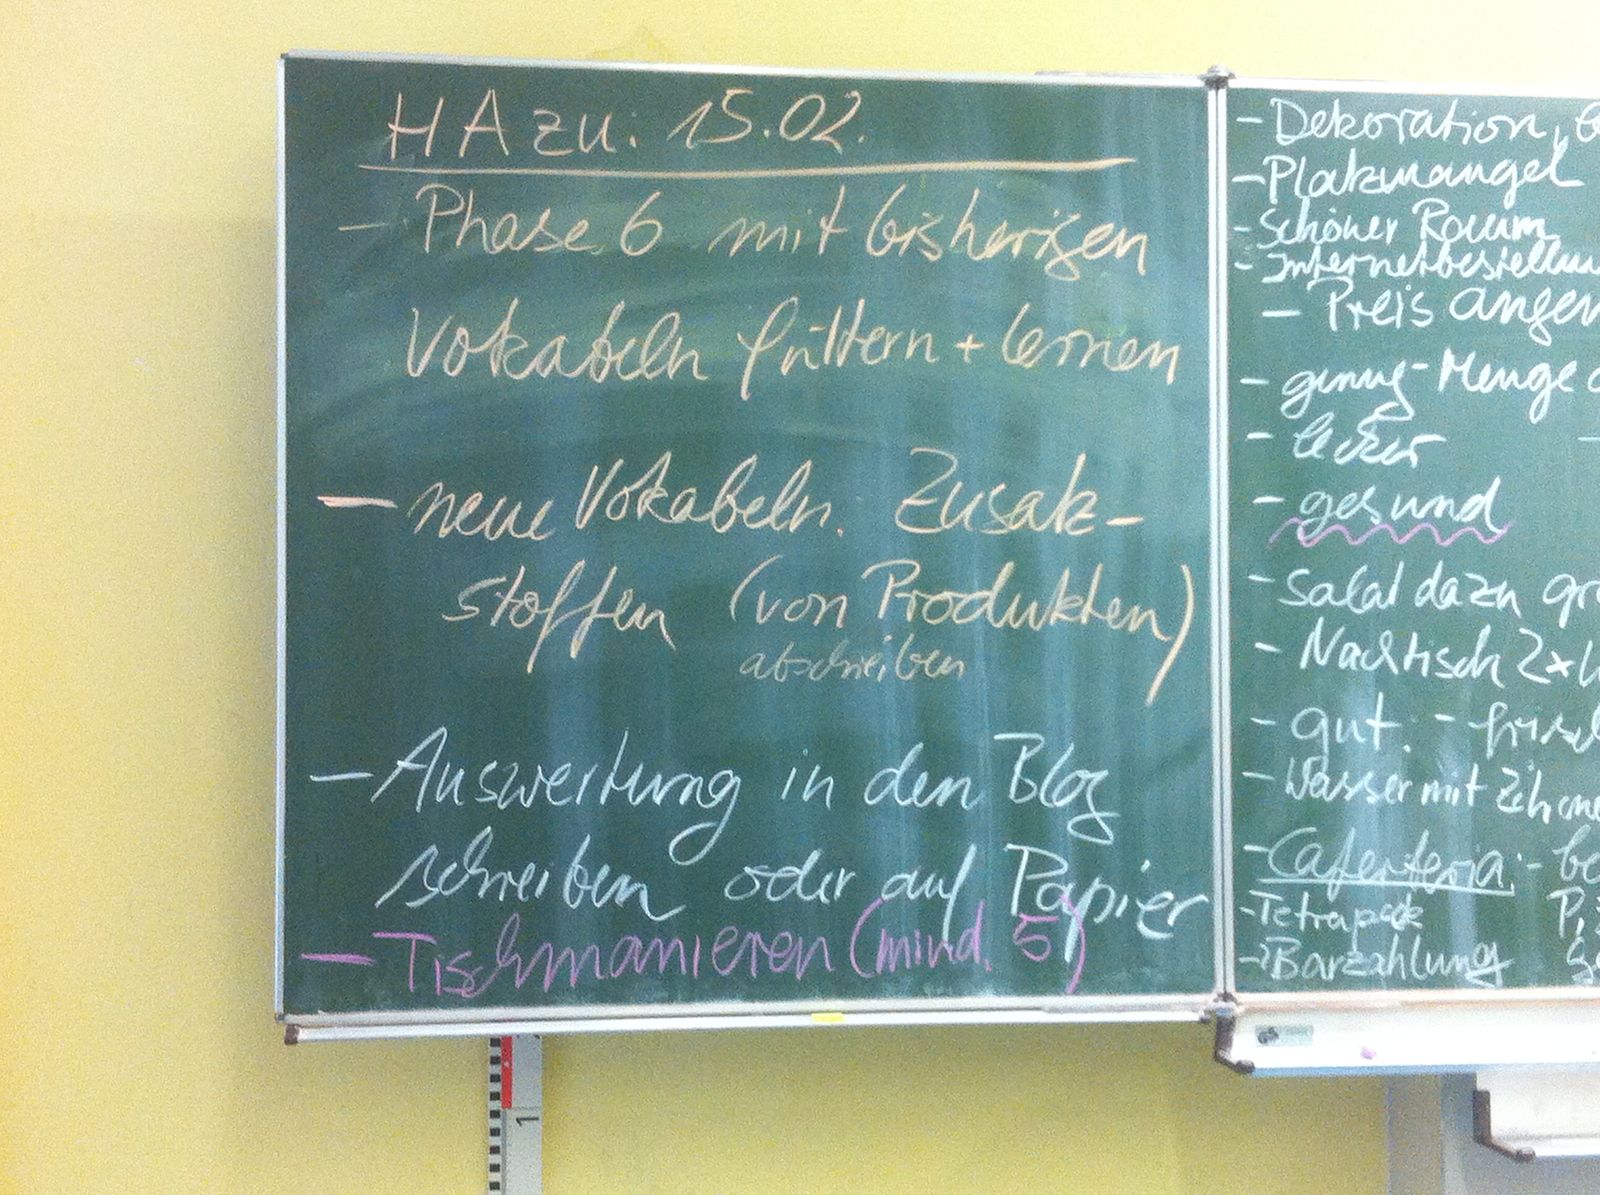 HA zu: 15.02.
- Phase 6 mit bisherigen
Vokabeln füttern + lernen
- neue Vokabeln. Zusatz-
stoffen (von Produkten)
abschreiben
- Auswertung in den Blog
schreiben oder auf Papier
- Tischmanieren (mind. 5)
- Dekoration,
- Platzmangel
- schöner Raum
- Internetbestellun
- Preis angen
- genug - Menge
- lecker
- gesund
- Salat dazu gr
- Nachtisch 2x
- gut. - frisch
- Wasser mit Zitrone
- Cafeteria: - be
- Tetrapack
- Barzahlung
1